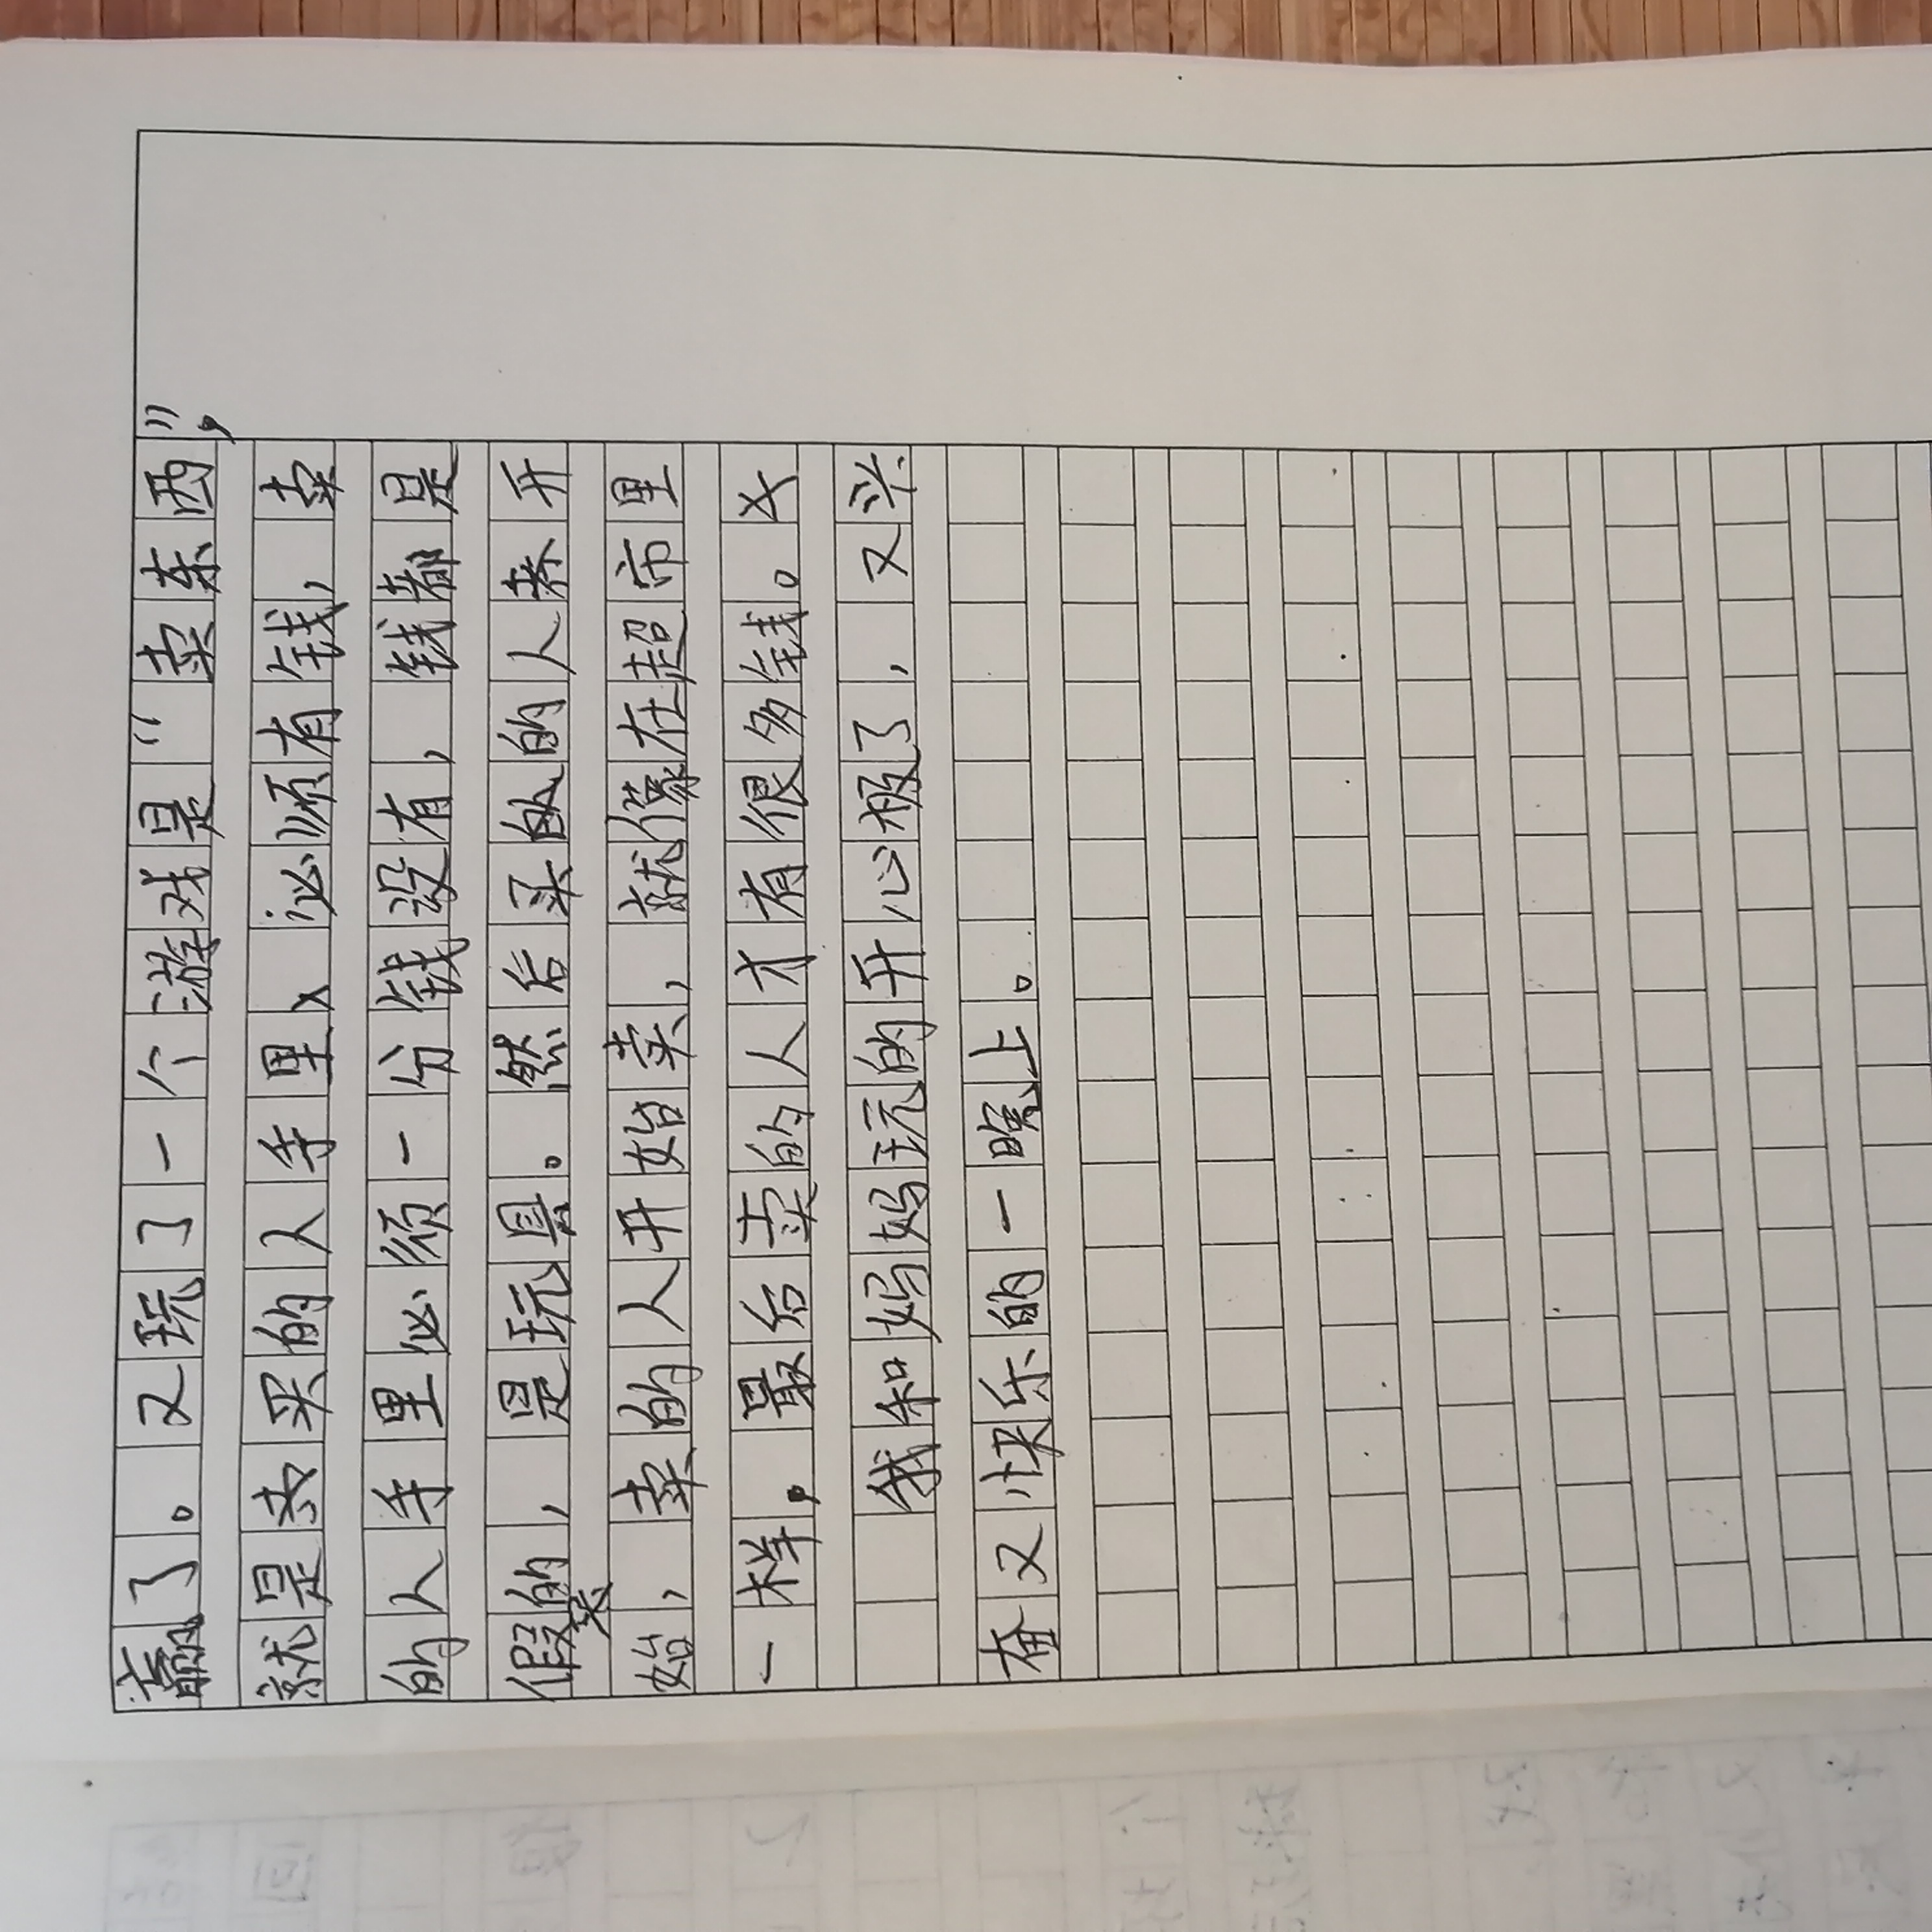 赢了。又玩了一个游戏是“卖东西”，
就是去买的人手里必须有钱，卖
的人手里必须一分钱没有，钱都是
假的，是玩具。然后买的的人来开
始买，卖的人开始卖，就像在超市里
一样，最后卖的人才有很多钱。
我和妈妈玩的开心极了，又兴
奋又快乐的一晚上。